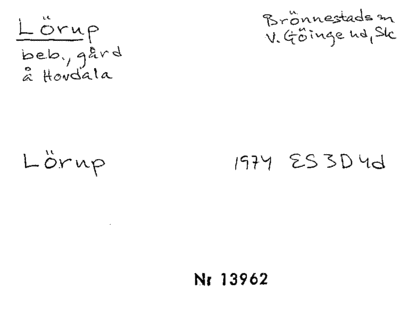 Lörup
Brönnestads sn
beb., gård
V. Göinge hd, Sk
å Hovdala
Lörup
1974 ES 3D4d
Nr 13962